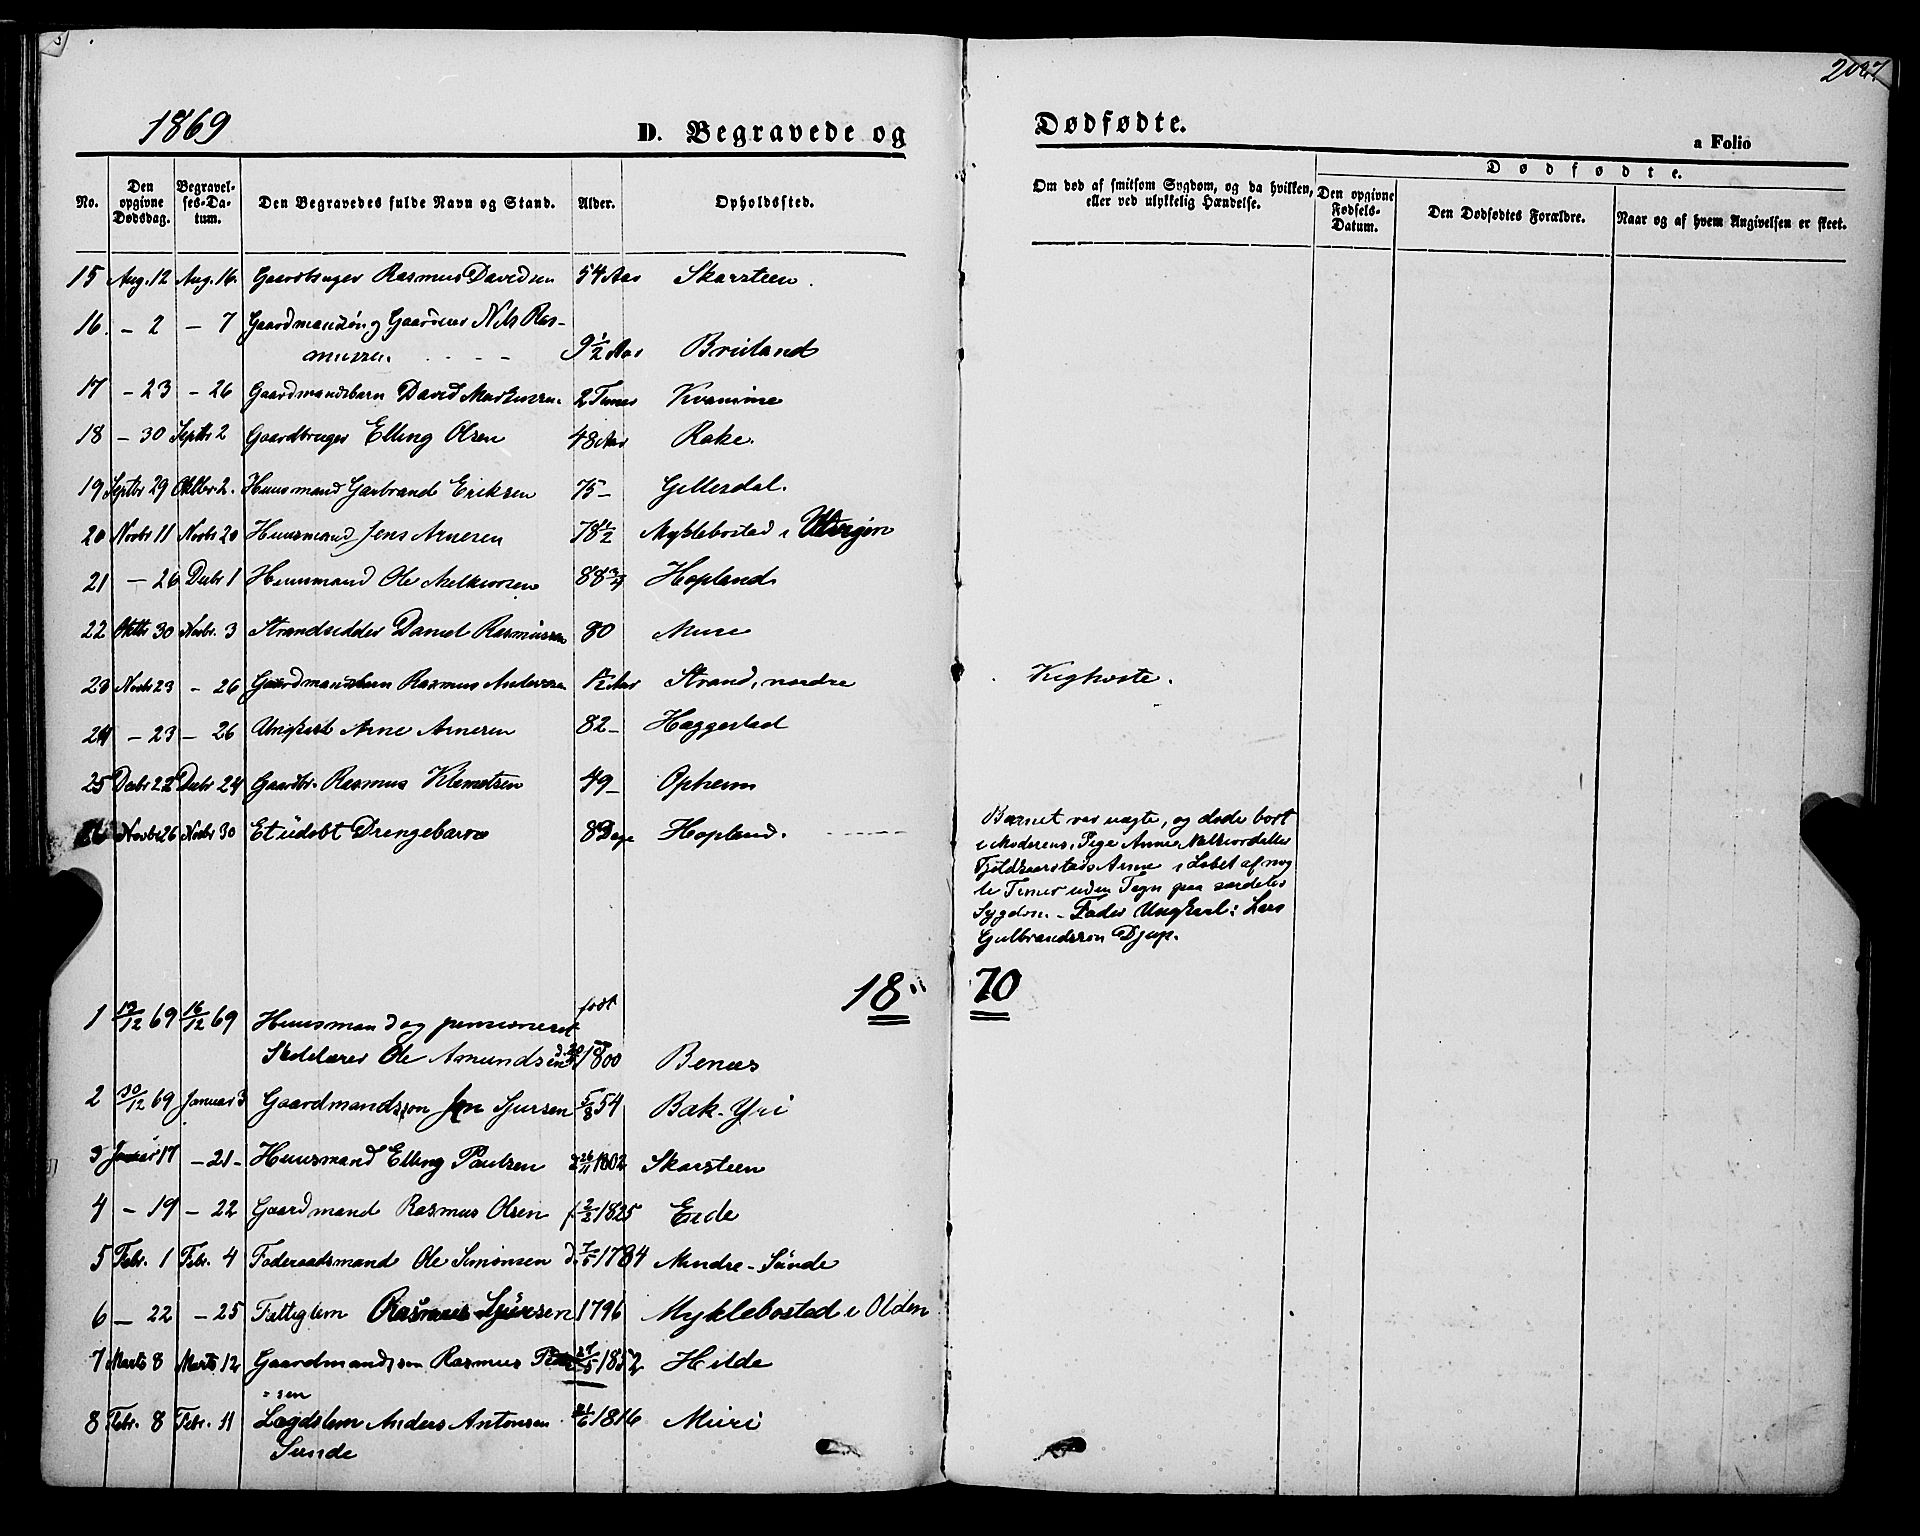 1869
D. Begravede og
Dødfødte.
a Folio
No.
Den opgivne Dødsdag.
Begravel-ses-Da-tum.
Den Begravedes fulde Navn og Stand.
Alder.
Opholdssted.
Om død af smitsom Sygdom, og da hvilken,
eller ved ulykkelig Hændelse.
Dødfødte.
Den opgivne Fødsels-Datum.
Den Dødfødtes Forældre.
Naar og af hvem Angivelsen er skeet.
15 Aug. 12 Aug. 16. Gaardbruger Rasmus Davidsen 54 Aar Skarsteen.
16. - 2 - 7 Gaardmandsøn Nils Ras-
mussen. 9½ Aar Breiland
17 - 23 - 26 Gaardmandsbarn David Markussen. 2 Timer Kvamme
18 - 30 Septbr 2 Gaardbruger Elling Olsen 48 Aar Rake.
19 Septbr 29 Oktbr. 2. Huusmand Garbrand Eriksen 75 - Gillesdal.
20 Novbr 11 Novbr 20 Huusmand Jens Arnesen 78½ Myklebostad i
21 - 26 Decbr 1 Huusmand Ole Melkiorsen 88¾ Hopland
22 Oktbr 30 Novbr. 3 Strandsidder Daniel Rasmussen 80 Mure
23 Novbr 23 - 26 Gaardmandsbarn Rasmus Andersen ½ Aar Strand, nordre Kighoste.
24 - 23 - 26 Ungkarl Arne Arnesen 82 - Heggestad
25 Decbr 22 Decbr 24 Gaardbr. Rasmus Klemetsen 49 - Opheim
26 Novbr 26 Novbr 30 Et udøbt Drengebarn 8 Dage Hopland.
Barnet var uægte, og døde bort
i Moderens, Pige Anne
Arne i Løbet af nog-
le Timer uden Tegn paa særdeles
Sygdom. - Fader Ungkarl: Lars
Gulbrandssøn Djup.
18 70
1 13/12 69 16/12 69 Huusmand og pensioneret født
Ole Amundsen 1800 Benæs
2 30/12 69 Januar 3 Gaardmandssøn Jon Sjursen 5/8 54 Bak-Yri
3 Januar 17 - 21 - Huusmand Elling Paulsen d 26/11 1802 Skarsteen
4 - 19 - 22 Gaardmand Rasmus Olsen f 2/2 1825 Eide
5 Febr. 1 Febr. 4 Føderaadsmand Ole Simonsen d. 7/5 1784 Mindre-Sunde
6 - 22 - 25 Fattiglem Rasmus Sjursen 1796 Myklebostad i Olden
7 Marts 8 Marts 12 Gaardmandssøn Rasmus 27/5 1852 Hilde
"sen
8 Febr. 8 Febr. 11 Lægdslem Anders Antonsen 1816 Muri
Sunde